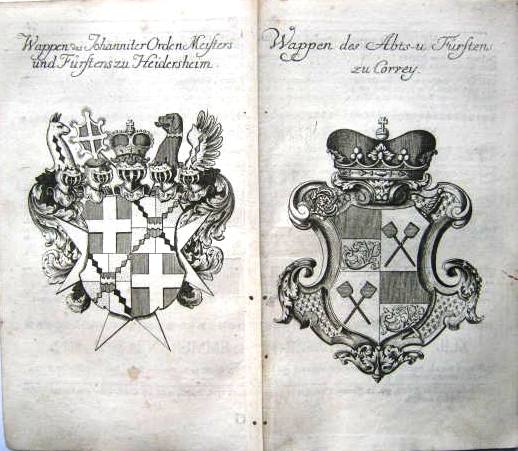 Wappen des Johanniter Orden Meisters
und Fürstens zu Heidersheim.
Wappen des Abts-u Fürstens
zu Corvey.